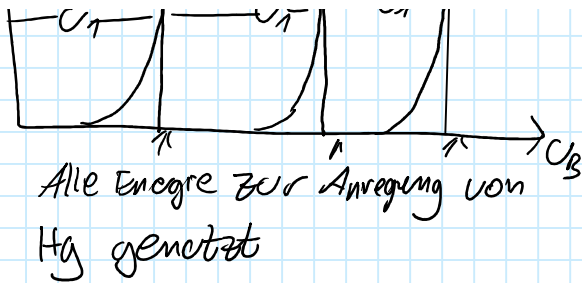 U₁ U₁ U₁
U_B
Alle Enegre zur Anregung von
Hg genutzt